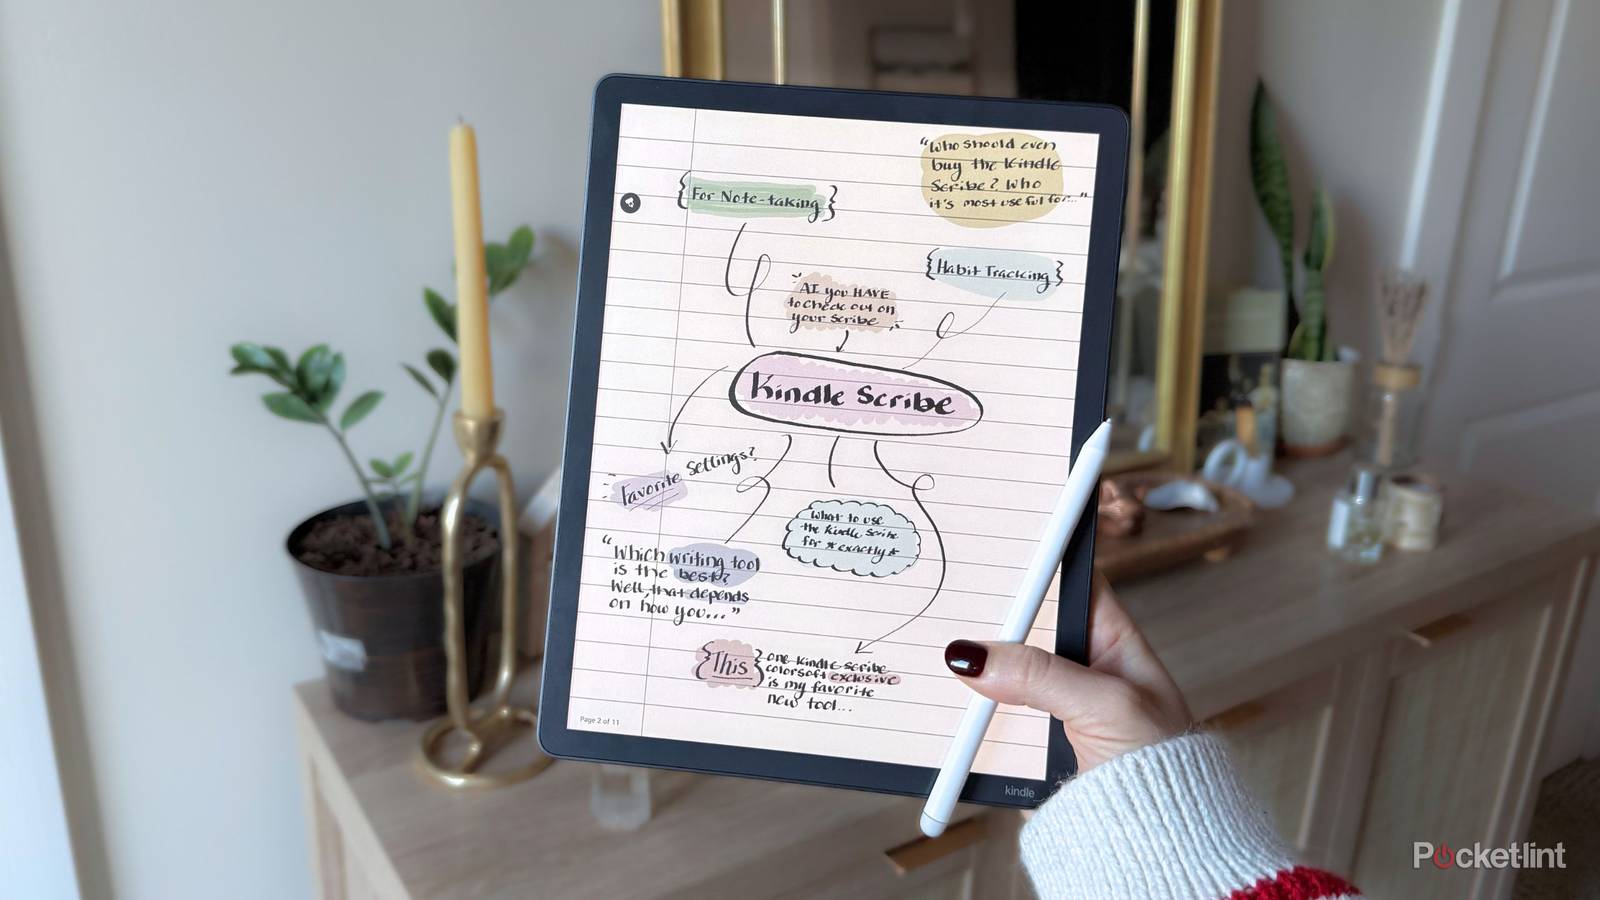 "Who should even
buy the Kindle
Scribe? Who
it's most useful for..."
{For Note-taking}
{Habit Tracking}
AI you HAVE
to check out on
your Scribe
Kindle Scribe
Favorite Settings?
What to use
the Kindle Scribe
for *exactly*
"Which writing tool
is the best?
Well, that depends
on how you..."
{This} one Kindle Scribe
colorsoft exclusive
is my favorite
new tool...
Page 2 of 11
kindle
Pocket-lint